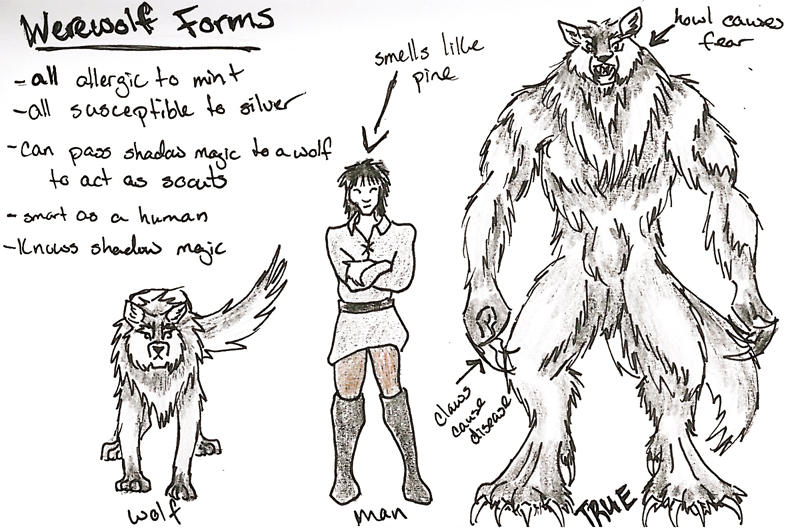 Werewolf Forms
- all allergic to mint
- all susceptible to silver
- Can pass shadow magic to a wolf
to act as scouts
- smart as a human
- Knows shadow magic
smells like
pine
howl causes
fear
claws
cause
disease
wolf
man
TRUE